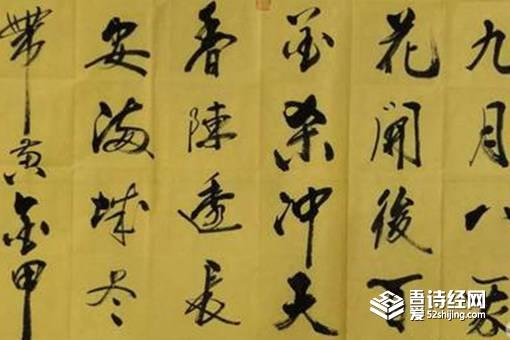 九月八我
花開後百
花杀冲天
香陳透長
安滿城尽
帶黄金甲
吾爱诗经网
52shijing.com